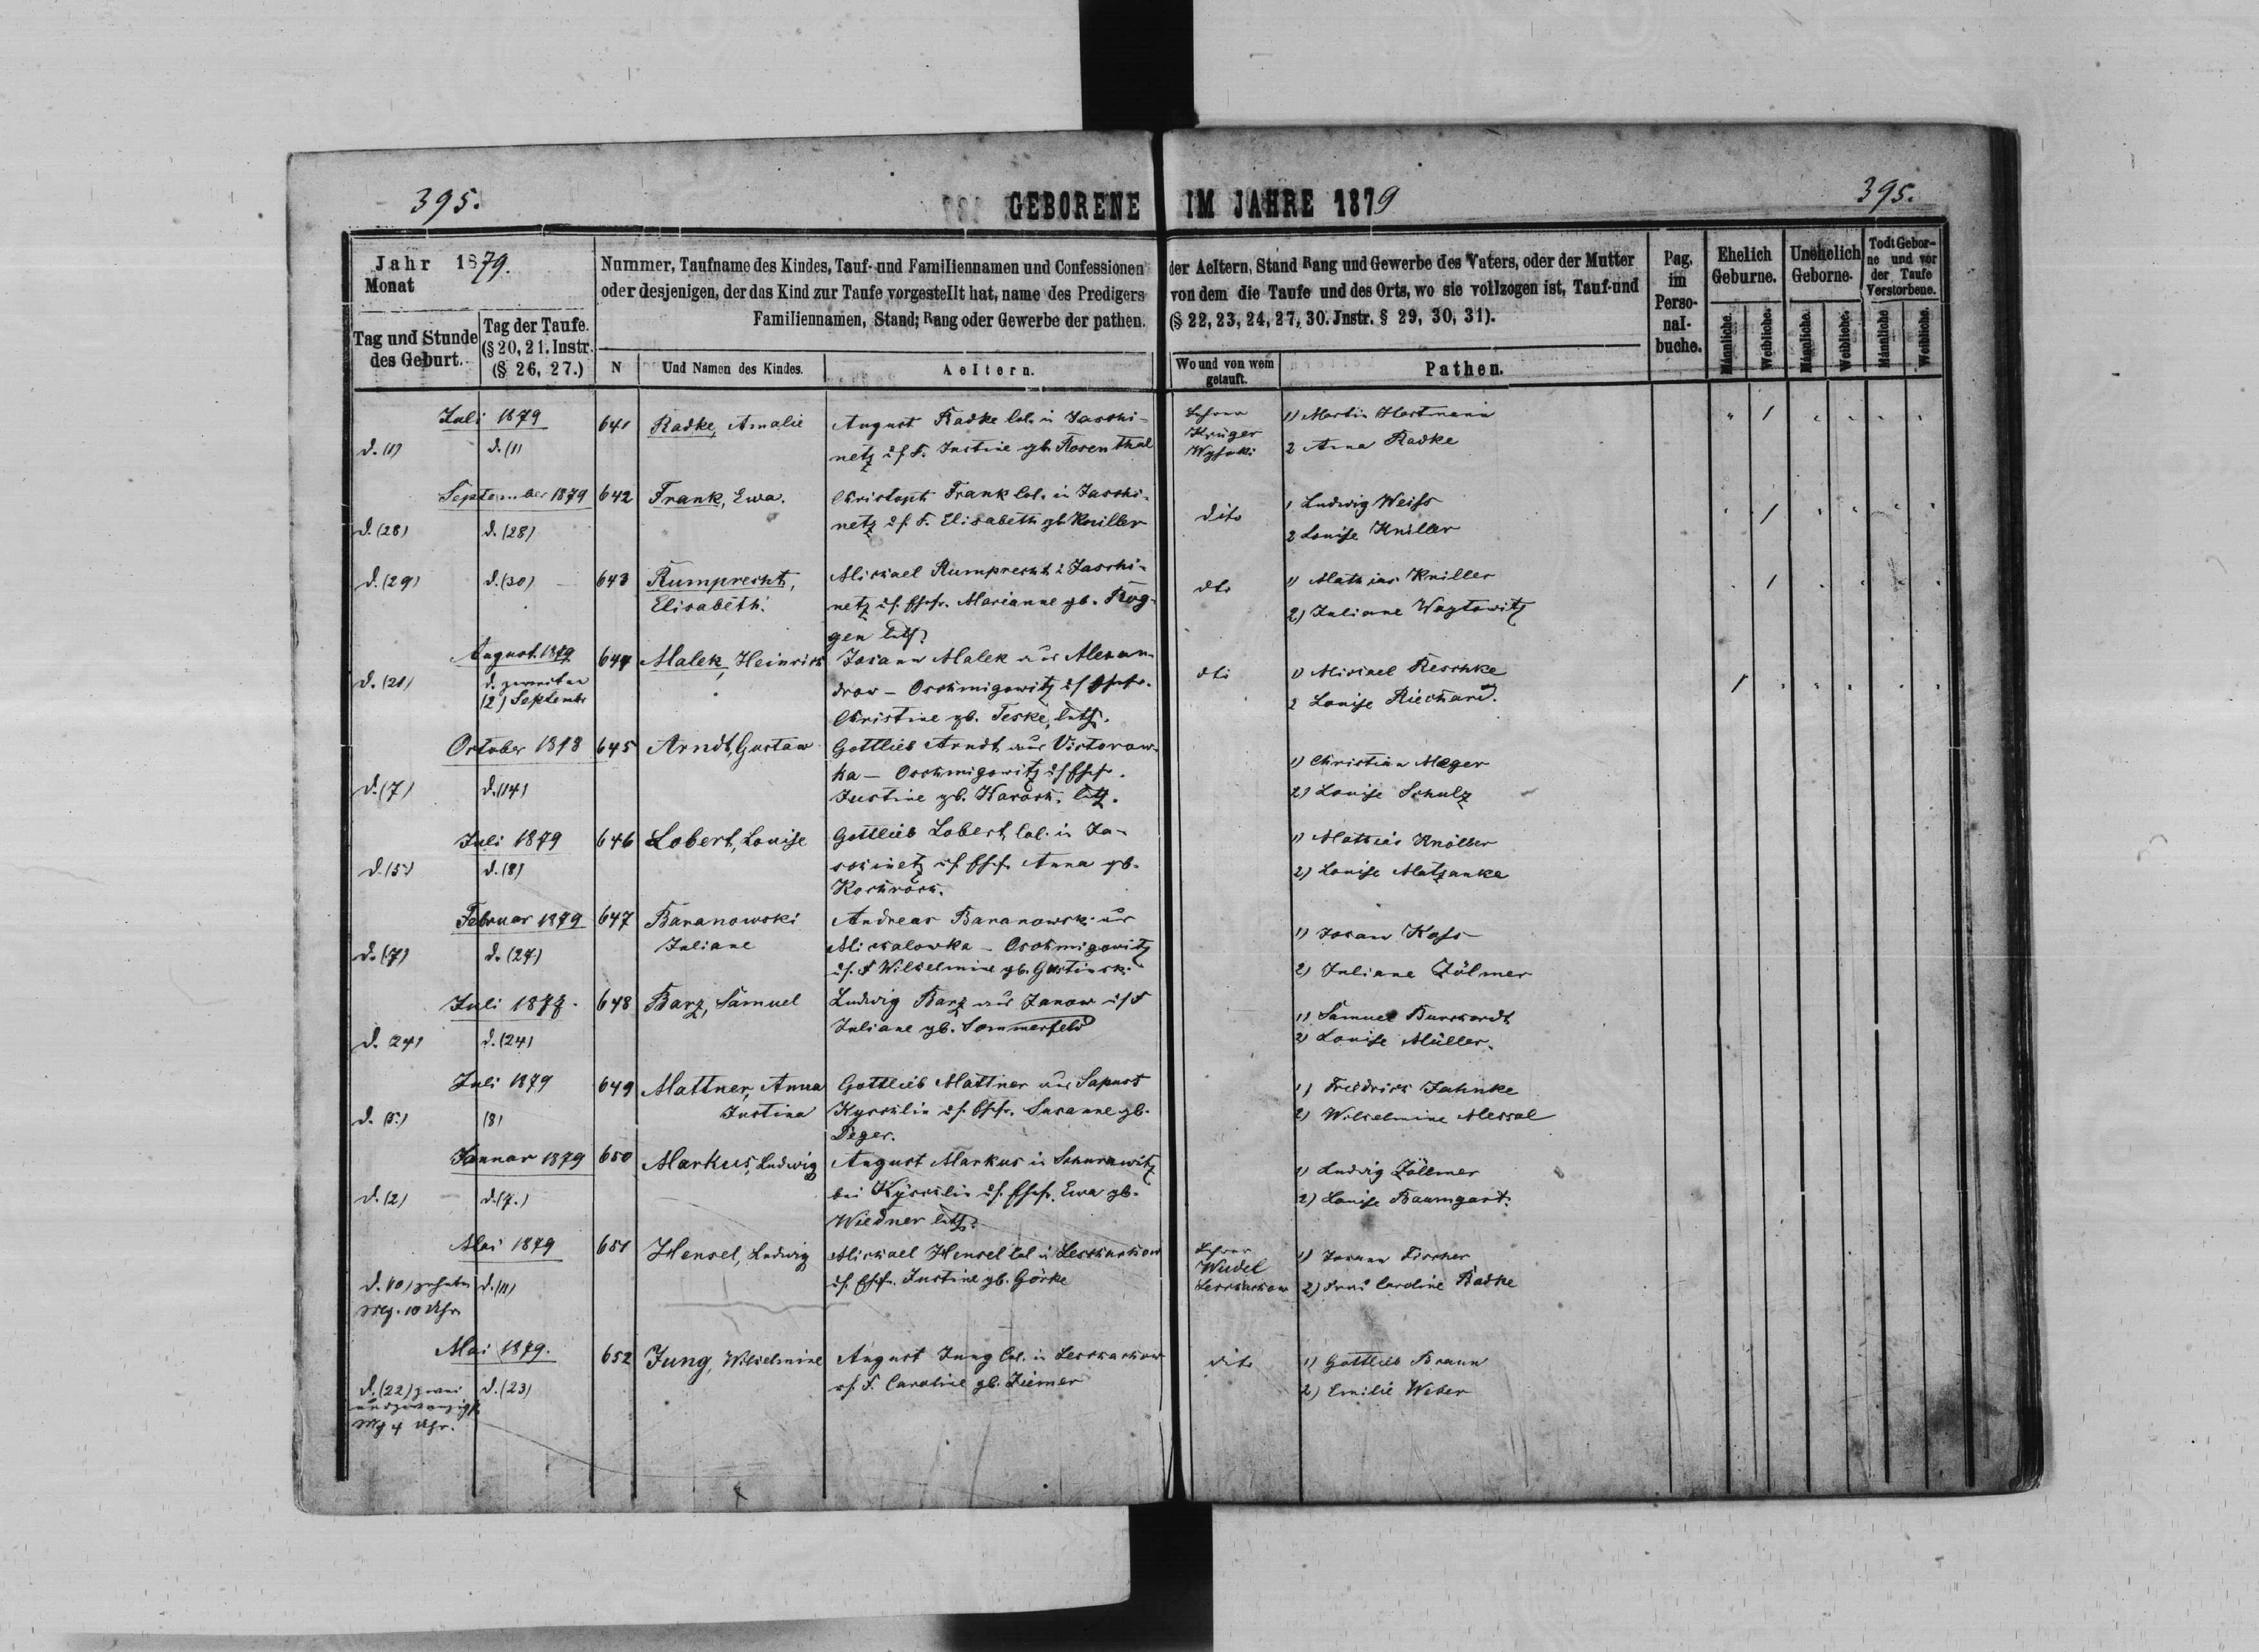 395.
GEBORENE IM JAHRE 1879
395.
Jahr 1879.
Monat
Tag und Stunde
des Geburt.
Tag der Taufe.
(§ 20, 21. Instr.
(§ 26, 27.)
Nummer, Taufname des Kindes, Tauf- und Familiennamen und Confessionen der Aeltern, Stand Rang und Gewerbe des Vaters, oder der Mutter
oder desjenigen, der das Kind zur Taufe vorgestellt hat, name des Predigers von dem die Taufe und des Orts, wo sie vollzogen ist, Tauf-und
Familiennamen, Stand; Rang oder Gewerbe der pathen. (§ 22, 23, 24, 27, 30. Jnstr. § 29, 30, 31).
N
Und Namen des Kindes.
Aeltern.
Wo und von wem
getauft.
Pathen.
Pag.
im
Perso-
nal-
buche.
Ehelich
Geburne.
Unehelich
Geborne.
Todt Gebor-
ne und vor
der Taufe
Verstorbene.
Männliche.
Weibliche.
Männliche.
Weibliche.
Männliche
Weibliche.
Juli 1879
d. (1)
d. (1)
641
Radke, Amalie
August Radke Col. in Jaschi-
netz u. s. F. Justine gb. Rosenthal
Lehrer
Krüger
1) Martin Hartmann
2 Anna Radke
September 1879
d. (28)
d. (28)
642
Frank, Ewa.
Christoph Frank Col. in Jaschi-
netz u. s. F. Elisabeth gb. Kniller
dito
1 Ludwig Weiss
2 Louise Kniller
d. (29)
d. (30)
643
Rumprecht,
Elisabeth.
Michael Rumprecht i Jaschi-
netz u. s. Ehefr. Marianne gb. Rog-
gen luth.
dto
1) Mathias Kniller
2) Juliane Woytowitz
August 1879
d. (21)
d. zweiten
(2) Septembr
644
Malek, Heinrich
Johann Malek aus Alexan-
drow - Oschmigowitz u s Ehefr.
Christine gb. Teske, luth.
dto
1) Michael Reschke
2 Louise Riechard.
October 1878
d. (7)
d. (14)
645
Arndt, Gustaw
Gottlieb Arndt aus Victorow-
ka - Oschmigowitz u s Ehefr.
Justine gb. Karosch. luth.
1) Christian Meger
2) Louise Schulz
Juli 1879
d. (5)
d. (8)
646
Lobert, Louise
Gottlieb Lobert, Col. in Ja-
schinetz u s. Ehefr. Anna gb.
1) Mathias Knoller
2) Louise Matzanke
Februar 1879
d. (7)
d. (27)
647
Baranowski
Juliane
Andreas Baranowski aus
Michalowka - Oschmigowitz
u. s. F Wilhelmine gb.
1) Johann Koss
2) Juliane Zölmer
Juli 1878.
d. 24)
d. (24)
648
Barz, Samuel
Ludwig Barz aus Janow u s F
Juliane gb. Sommerfeld
1) Samuel Burchardt
2) Louise Müller.
Juli 1879
d. (5.)
(8)
649
Mattner, Anna
Justina
Gottlieb Mattner aus Sapust
Kyschlin u s. Ehefr. Susanne gb.
Deger.
1) Friedrich Jahnke
2) Wilhelmine Messal
Januar 1879
d. (2)
d. (7.)
650
Markus, Ludwig
August Markus in Schurawitz
bei Kyschlin u s. Ehefr. Ewa gb.
Wiedner luth.
1) Ludwig Zöllmer
2) Louise Baumgart.
Mai 1879
d. 10) zehnten
Mrg. 10 Uhr
d. (11)
651
Hensel, Ludwig
Michael Hensel Col in Leschachow
u s. Ehefr. Justine gb. Görke
Lehrer
Weidel
Leschachow
1) Johann Fischer
2) Frau Caroline Radke
Mai 1879.
d. (22) zwei
undzwanzigst
Mrg 4 Uhr.
d. (23)
652
Jung, Wilhelmine
August Jung Col. in Leschachow
u s. F. Caroline gb. Ziemer
dito
1) Gottlieb Braun
2) Emilie Weber